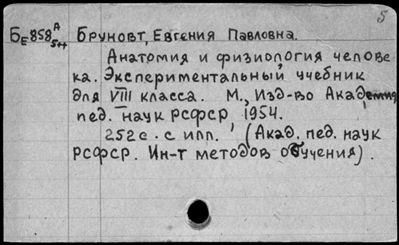 5
БЕ858 А 5++ Бруновт, Евгения Павловна.
Анатомия и физиология челове
ка. Экспериментальный учебник
для VIII класса. М., Изд-во Академия
пед. наук РСФСР, 1954.
252 с. с илл. (Акад. пед. наук
РСФСР. Ин-т методов обучения).